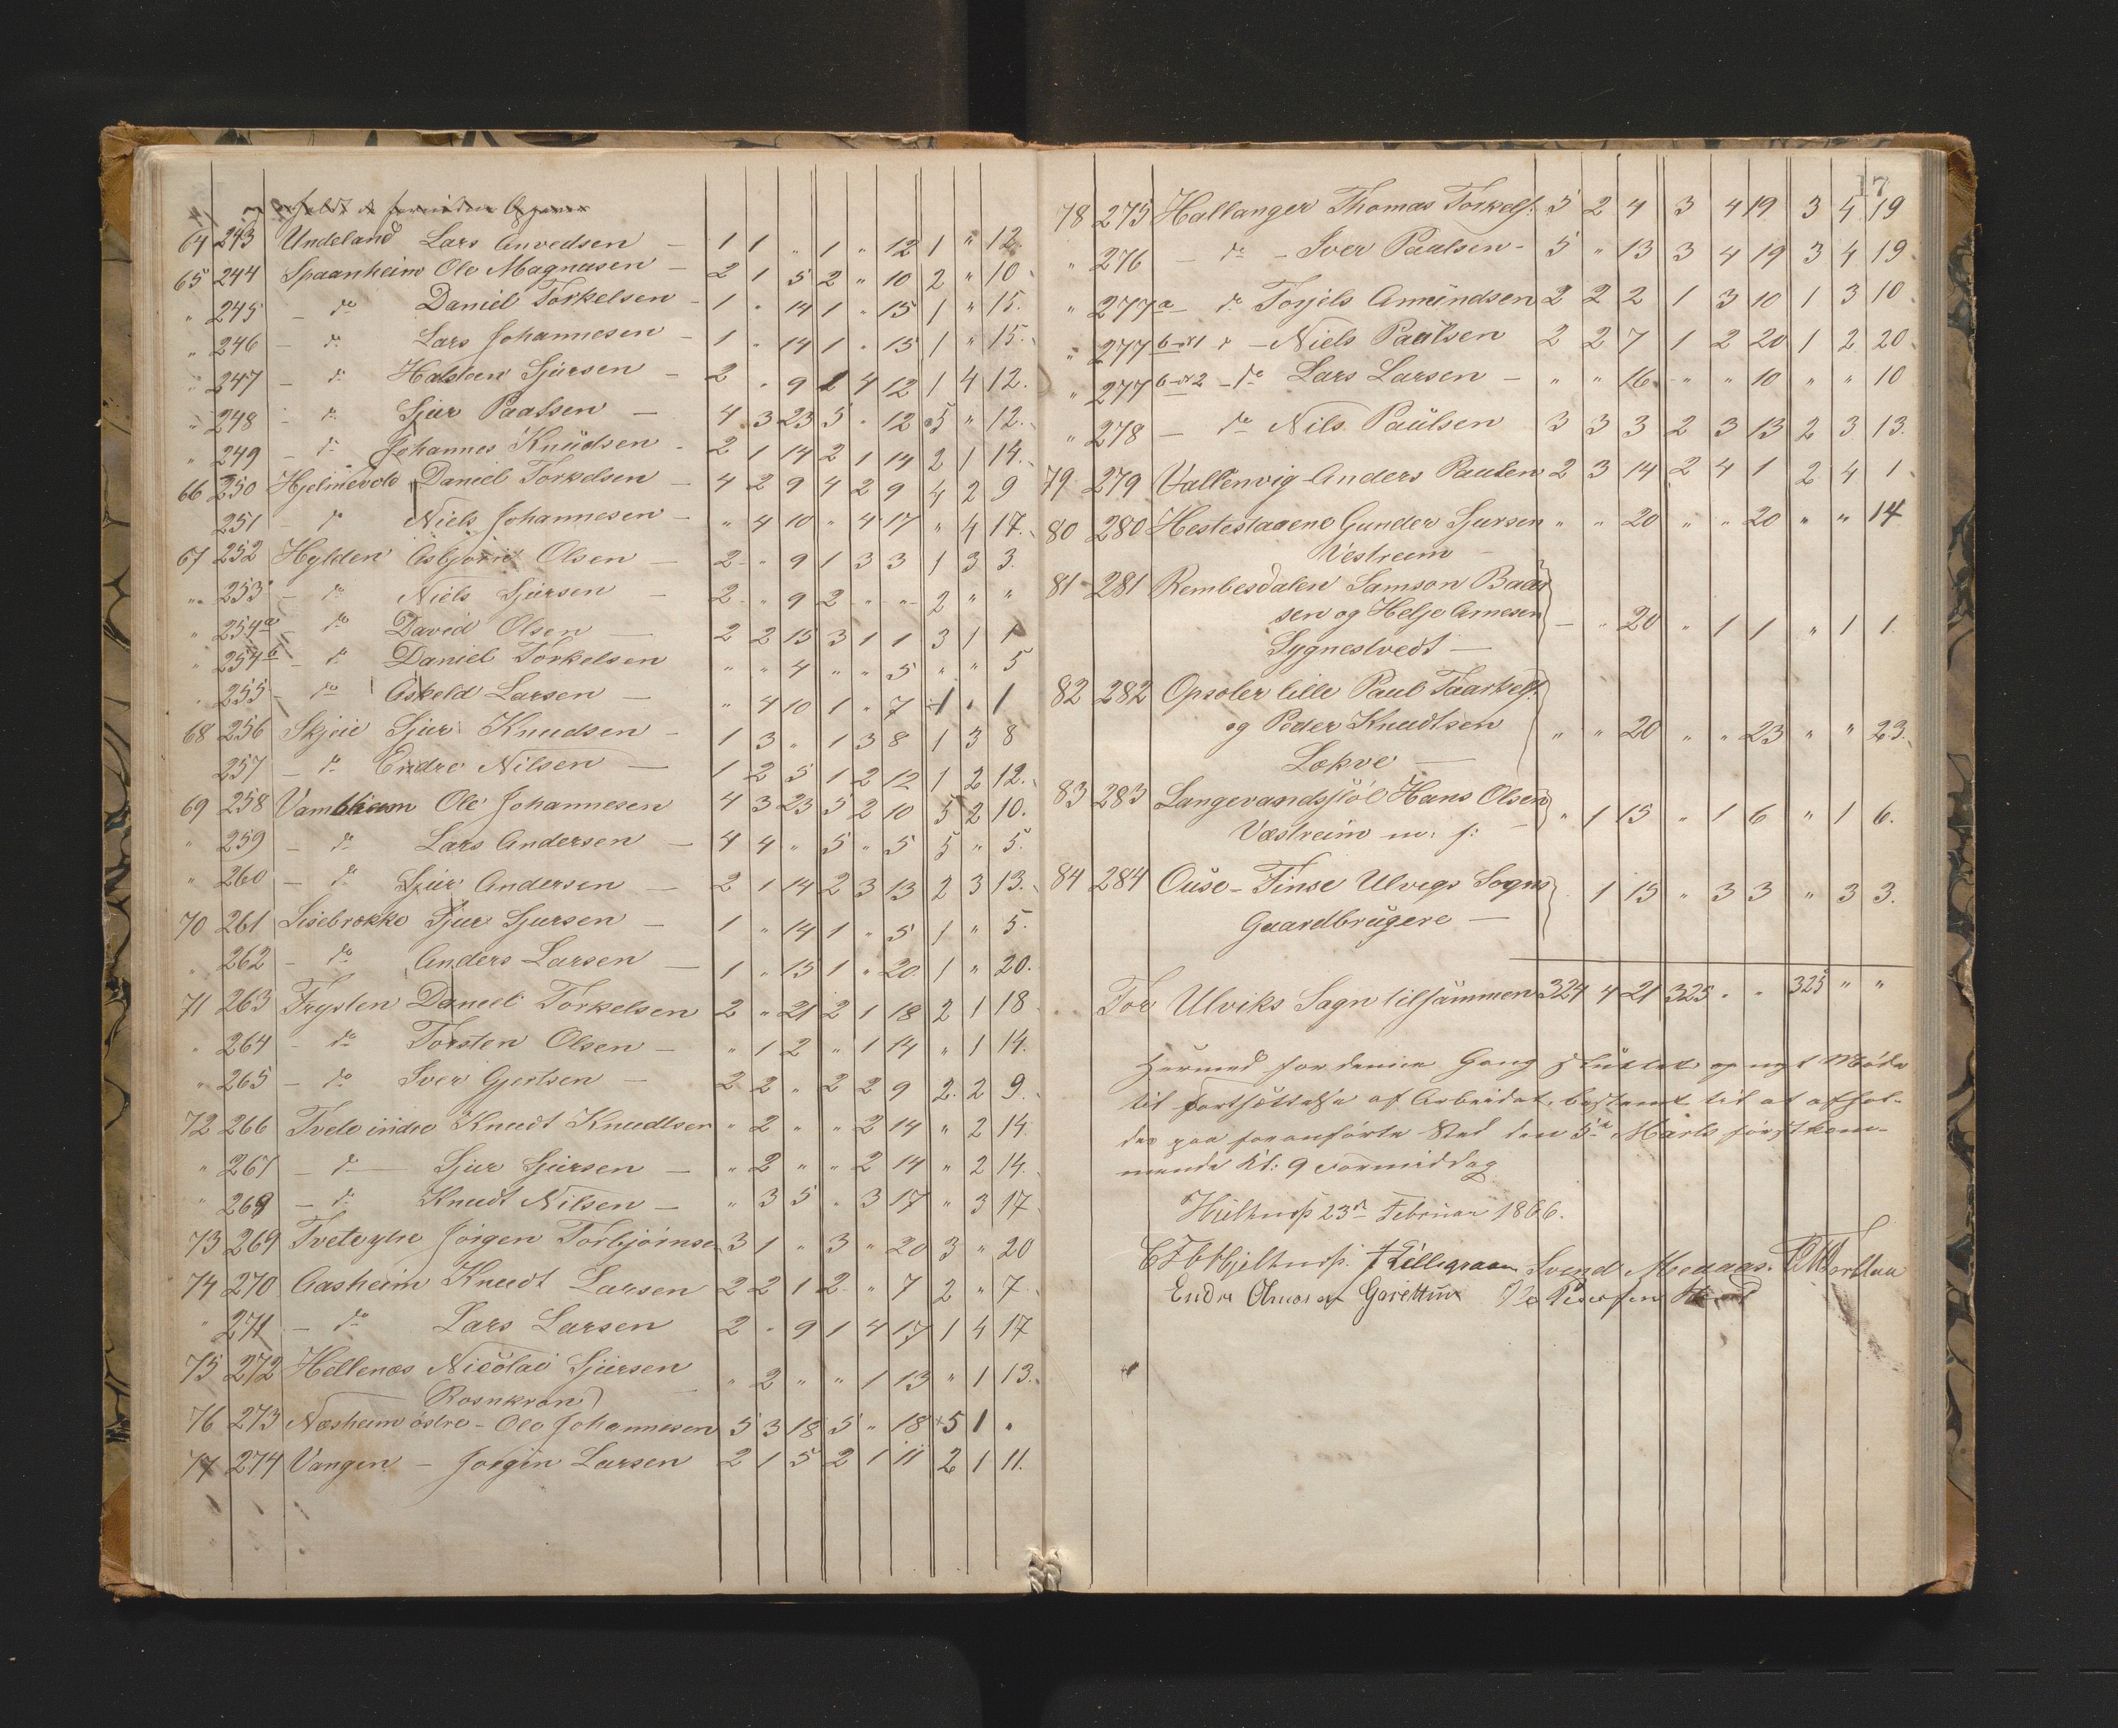 64 243 Undeland Lars Anvedsen — 1 1 " 1 " 12 1 " 12.
65 244 Spaanheim Ole Magnusen — 2 1 5 2 " 10 2 " 10
" 245 — do Daniel Torkelsen — 1 " 14 1 " 15 1 " 15.
" 246 — do Lars Johannesen — 1 " 14 1 " 15 1 " 15.
" 247 — do Halsten Sjursen — 2 " 9 1 4 12 1 4 12.
" 248 — do Sjur Paalsen — 4 3 23 5 " 12 5 " 12.
" 249 — do Johannes Knudsen — 2 1 14 2 1 14 2 1 14.
66 250 Hjelmevold Daniel Torkelsen — 4 2 9 4 2 9 4 2 9
251 — do Niels Johannesen — " 4 10 " 4 17 " 4 17.
67 252 Hylden Asbjørn Olsen — 2 " 9 1 3 3 1 3 3.
" 253 — do Niels Sjursen — 2 " 9 2 " " 2 " "
" 254a — do David Olsen — 2 2 15 3 1 1 3 1 1
" 254b — do Daniel Torkelsen " " 4 " " 5 " " 5
" 255 — do Askeld Larsen — " 4 10 1 " 7 1 " 1
68 256 Skjeie Sjur Knudsen — 1 3 " 1 3 8 1 3 8
257 — do Endre Nilsen — 1 2 5 1 2 12 1 2 12.
69 258 Vambheim Ole Johannesen 4 3 23 5 2 10 5 2 10.
" 259 — do Lars Andersen — 4 4 " 5 " 5 5 " 5.
" 260 — do Sjur Andersen — 2 1 14 2 3 13 2 3 13.
70 261 Lisebrække Sjur Sjursen — 1 " 14 1 " 5 1 " 5.
" 262 — do Anders Larsen — 1 " 13 1 " 20 1 " 20.
71 263 Trysten Daniel Torkelsen 2 " 21 2 1 18 2 1 18
" 264 — do Torsten Olsen — " 1 2 " 1 14 " 1 14.
" 265 — do Iver Gjertsen — 2 2 " 2 2 9 2. 2 9.
72 266 Tveto indre Knudt Knudtsen " 2 " " 2 14 " 2 14.
" 267 — do — Sjur Sjursen — " 2 " " 2 14 " 2 14.
" 268 — do Knudt Nilsen — " 3 5 " 3 17 " 3 17
73 269 Tveto ytre Jørgen Torbjørnsen 3 1 " 3 " 20 3 " 20
74 270 Aasheim Knudt Larsen 2 2 1 2 " 7 2 " 7
" 271 — do Lars Larsen 2 " 9 1 4 17 1 4 17
75 272 Hellenæs Nicolai Sjursen " 2 " " 1 13 " 1 13.
Rosnkrands
76 273 Næsheim østre — Ole Johannesen 5 3 18 5 " 18 5 1 "
77 274 Vangen — Jørgen Larsen 2 1 5 2 1 11 2 1 11.
17
78 275 Hallanger Thomas Torkels. 5 2 4 3 4 19 3 4 19
" 276 — do — Iver Paulsen — 5 " 13 3 4 19 3 4 19
" 277a — do Torjels Amundsen 2 2 2 1 3 10 1 3 10
" 277b nr 1 do — Niels Paulsen 2 2 7 1 2 20 1 2 20
" 277b nr 2 — do Lars Larsen — " " 16 " " 10 " " 10
" 278 — do Nils Paulsen 3 3 3 2 3 13 2 3 13.
79 279 Vallenvig Anders Paulsen 2 3 14 2 4 1 2 4 1
80 280 Hesteslaaeno Gunder Sjursen " " 20 " " 20 " " 14
Vestreim —
81 281 Rembesdalen Samson Baar
sen og Helje Arnesen — " 20 " 1 1 " 1 1.
Lygnestvedt —
82 282 Opsæter lille Paul Taarkels.
og Peder Knudtsen " " 20 " " 23 " " 23.
Løkve —
83 283 Langevandsstøl Hans Olsen " 1 15 " 1 6 " 1 6.
Væstreim m: f: —
84 284 Ouse-Finse Ulvigs Sogns " 1 15 " 3 3 " 3 3.
Gaardbrugere —
For Ulviks Sogn tilsammen 324 4 21 325 " " 325 " "
Hermed for denne Gang sluttet og nyt Møde
til Fortsættelse af Arbeidet, bestemt til at afhol-
des paa foranførte Sted den 5te Marts førstkom-
mende Kl: 9 Formiddag.
Hjeltnæs 23de Februar 1866.
Hjeltnæs. Lillegraven Svend Medaas.
Endre Garetthun Pedersen